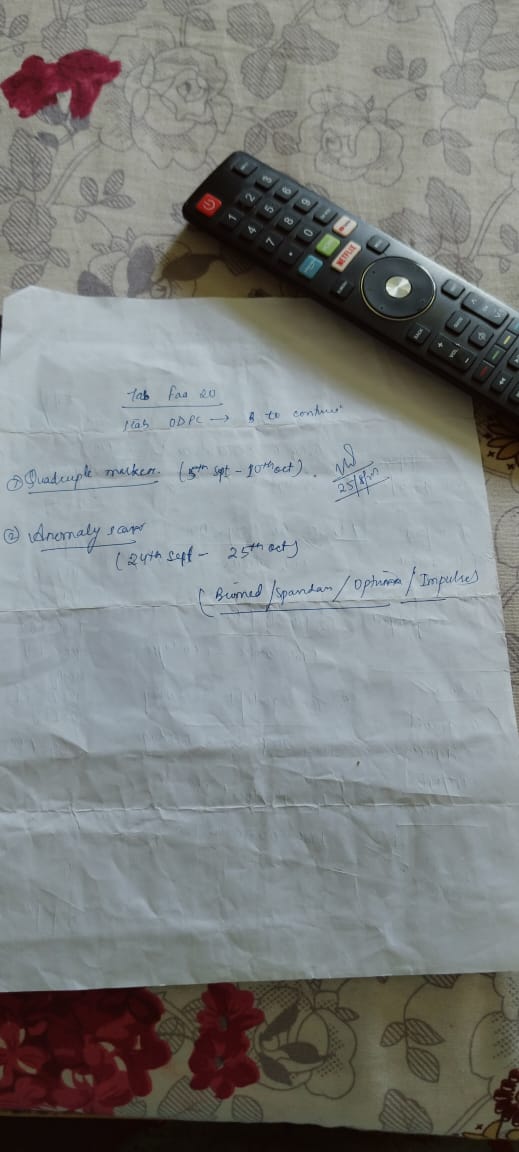 1 2 3
4 5 6
7 8 9
0
NETFLIX
BACK
VOL
Tab Faa 20
ODPC → to continue
① Quadruple marker. (5th Sept - 10th oct).
25/8/
② Anomaly scan
(24th Sept - 25th oct)
(Biomed / Spandan / Optima / Impulse)